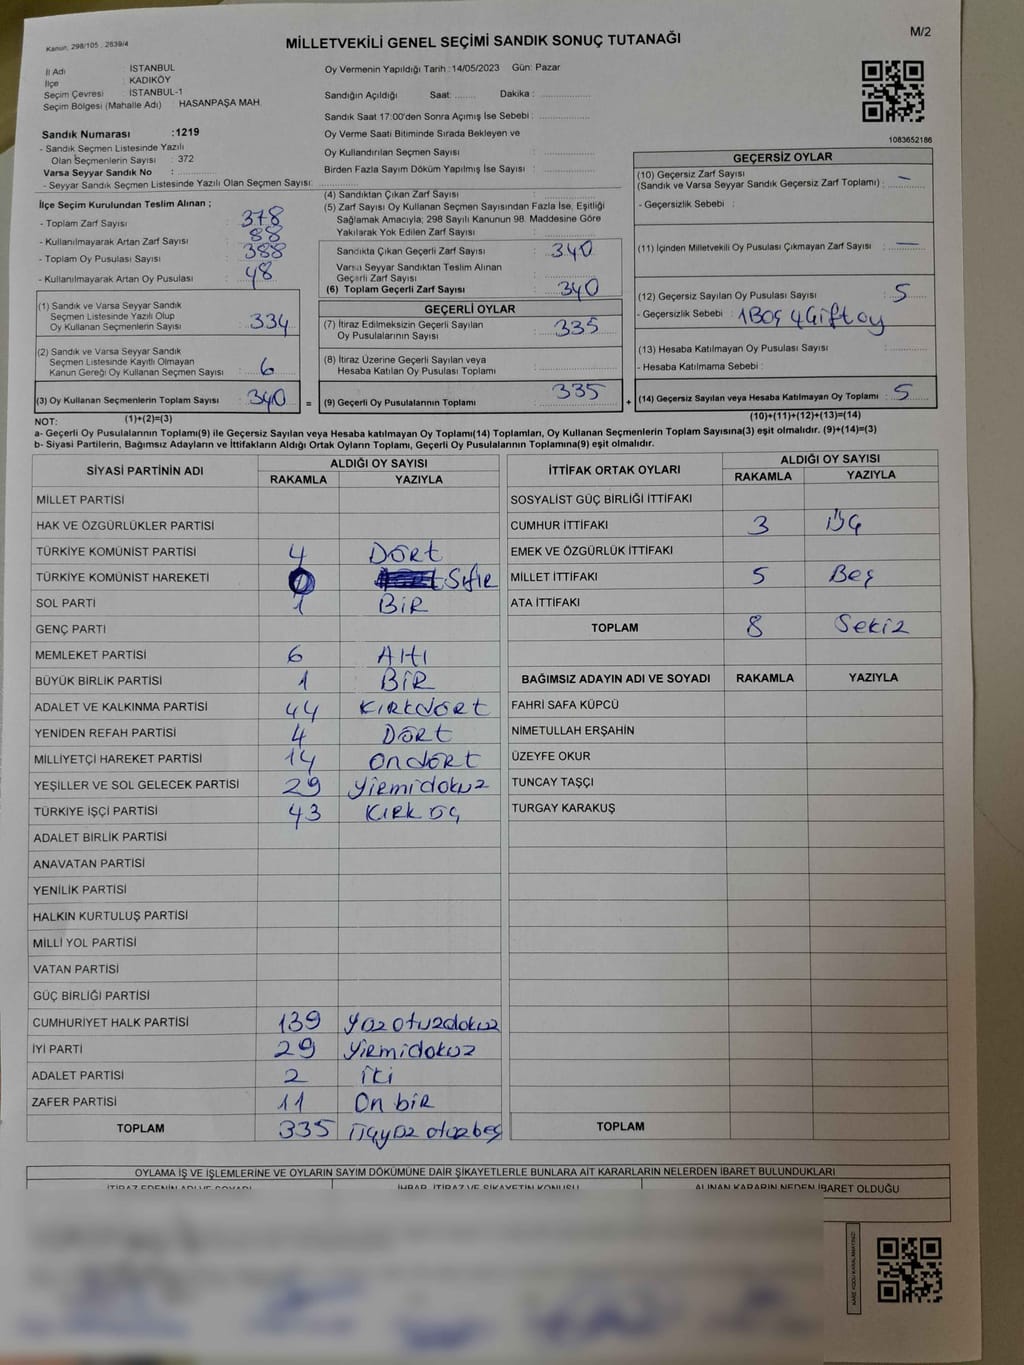 Kanun, 298/105 . 2839/4
MİLLETVEKİLİ GENEL SEÇİMİ SANDIK SONUÇ TUTANAĞI
M/2
İl Adı : İSTANBUL
İlçe : KADIKÖY
Seçim Çevresi : İSTANBUL-1
Seçim Bölgesi (Mahalle Adı) : HASANPAŞA MAH.
Oy Vermenin Yapıldığı Tarih :14/05/2023 Gün: Pazar
Sandığın Açıldığı Saat: ........ Dakika : ....................
Sandık Saat 17:00'den Sonra Açımış İse Sebebi : ....................
Oy Verme Saati Bitiminde Sırada Bekleyen ve
Oy Kullandırılan Seçmen Sayısı : ....................
Birden Fazla Sayım Döküm Yapılmış İse Sayısı : ....................
Sandık Numarası :1219
- Sandık Seçmen Listesinde Yazılı
Olan Seçmenlerin Sayısı : 372
Varsa Seyyar Sandık No : ....................
- Seyyar Sandık Seçmen Listesinde Yazılı Olan Seçmen Sayısı: ....................
1083652186
İlçe Seçim Kurulundan Teslim Alınan ;
- Toplam Zarf Sayısı : 378
- Kullanılmayarak Artan Zarf Sayısı : 88
- Toplam Oy Pusulası Sayısı : 388
- Kullanılmayarak Artan Oy Pusulası : 48
(1) Sandık ve Varsa Seyyar Sandık
Seçmen Listesinde Yazılı Olup
Oy Kullanan Seçmenlerin Sayısı : 334
(2) Sandık ve Varsa Seyyar Sandık
Seçmen Listesinde Kayıtlı Olmayan
Kanun Gereği Oy Kullanan Seçmen Sayısı : 6
(3) Oy Kullanan Seçmenlerin Toplam Sayısı : 340
(4) Sandıktan Çıkan Zarf Sayısı : ....................
(5) Zarf Sayısı Oy Kullanan Seçmen Sayısından Fazla İse, Eşitliği
Sağlamak Amacıyla; 298 Sayılı Kanunun 98. Maddesine Göre
Yakılarak Yok Edilen Zarf Sayısı : ....................
Sandıkta Çıkan Geçerli Zarf Sayısı : 340
Varsa Seyyar Sandıktan Teslim Alınan
Geçerli Zarf Sayısı : ....................
(6) Toplam Geçerli Zarf Sayısı : 340
GEÇERLİ OYLAR
(7) İtiraz Edilmeksizin Geçerli Sayılan
Oy Pusulalarının Sayısı : 335
(8) İtiraz Üzerine Geçerli Sayılan veya
Hesaba Katılan Oy Pusulası Toplamı : ....................
= (9) Geçerli Oy Pusulalarının Toplamı : 335
GEÇERSİZ OYLAR
(10) Geçersiz Zarf Sayısı
(Sandık ve Varsa Seyyar Sandık Geçersiz Zarf Toplamı) : —
- Geçersizlik Sebebi :
(11) İçinden Milletvekili Oy Pusulası Çıkmayan Zarf Sayısı : —
(12) Geçersiz Sayılan Oy Pusulası Sayısı : 5
- Geçersizlik Sebebi : 1Boş 4Çift oy
(13) Hesaba Katılmayan Oy Pusulası Sayısı : ....................
- Hesaba Katılmama Sebebi :
+ (14) Geçersiz Sayılan veya Hesaba Katılmayan Oy Toplamı : 5
NOT: (1)+(2)=(3) (10)+(11)+(12)+(13)=(14)
a- Geçerli Oy Pusulalarının Toplamı(9) ile Geçersiz Sayılan veya Hesaba katılmayan Oy Toplamı(14) Toplamları, Oy Kullanan Seçmenlerin Toplam Sayısına(3) eşit olmalıdır. (9)+(14)=(3)
b- Siyasi Partilerin, Bağımsız Adayların ve İttifakların Aldığı Ortak Oyların Toplamı, Geçerli Oy Pusulalarının Toplamına(9) eşit olmalıdır.
SİYASİ PARTİNİN ADI ALDIĞI OY SAYISI
RAKAMLA YAZIYLA
MİLLET PARTİSİ
HAK VE ÖZGÜRLÜKLER PARTİSİ
TÜRKİYE KOMÜNİST PARTİSİ 4 Dört
TÜRKİYE KOMÜNİST HAREKETİ 0 Sıfır
SOL PARTİ 1 Bir
GENÇ PARTİ
MEMLEKET PARTİSİ 6 Altı
BÜYÜK BİRLİK PARTİSİ 1 Bir
ADALET VE KALKINMA PARTİSİ 44 kırkdört
YENİDEN REFAH PARTİSİ 4 Dört
MİLLİYETÇİ HAREKET PARTİSİ 14 ondört
YEŞİLLER VE SOL GELECEK PARTİSİ 29 yirmidokuz
TÜRKİYE İŞÇİ PARTİSİ 43 kırk üç
ADALET BİRLİK PARTİSİ
ANAVATAN PARTİSİ
YENİLİK PARTİSİ
HALKIN KURTULUŞ PARTİSİ
MİLLİ YOL PARTİSİ
VATAN PARTİSİ
GÜÇ BİRLİĞİ PARTİSİ
CUMHURİYET HALK PARTİSİ 139 yüz otuzdokuz
İYİ PARTİ 29 yirmidokuz
ADALET PARTİSİ 2 iki
ZAFER PARTİSİ 11 On bir
TOPLAM 335 üçyüz otuzbeş
İTTİFAK ORTAK OYLARI ALDIĞI OY SAYISI
RAKAMLA YAZIYLA
SOSYALİST GÜÇ BİRLİĞİ İTTİFAKI
CUMHUR İTTİFAKI 3 üç
EMEK VE ÖZGÜRLÜK İTTİFAKI
MİLLET İTTİFAKI 5 Beş
ATA İTTİFAKI
TOPLAM 8 Sekiz
BAĞIMSIZ ADAYIN ADI VE SOYADI RAKAMLA YAZIYLA
FAHRİ SAFA KÜPCÜ
NİMETULLAH ERŞAHİN
ÜZEYFE OKUR
TUNCAY TAŞÇI
TURGAY KARAKUŞ
TOPLAM
OYLAMA İŞ VE İŞLEMLERİNE VE OYLARIN SAYIM DÖKÜMÜNE DAİR ŞİKAYETLERLE BUNLARA AİT KARARLARIN NELERDEN İBARET BULUNDUKLARI
İTİRAZ EDENİN ADI VE SOYADI İHBAR, İTİRAZ VE ŞİKAYETİN KONUSU ALINAN KARARIN NEDEN İBARET OLDUĞU